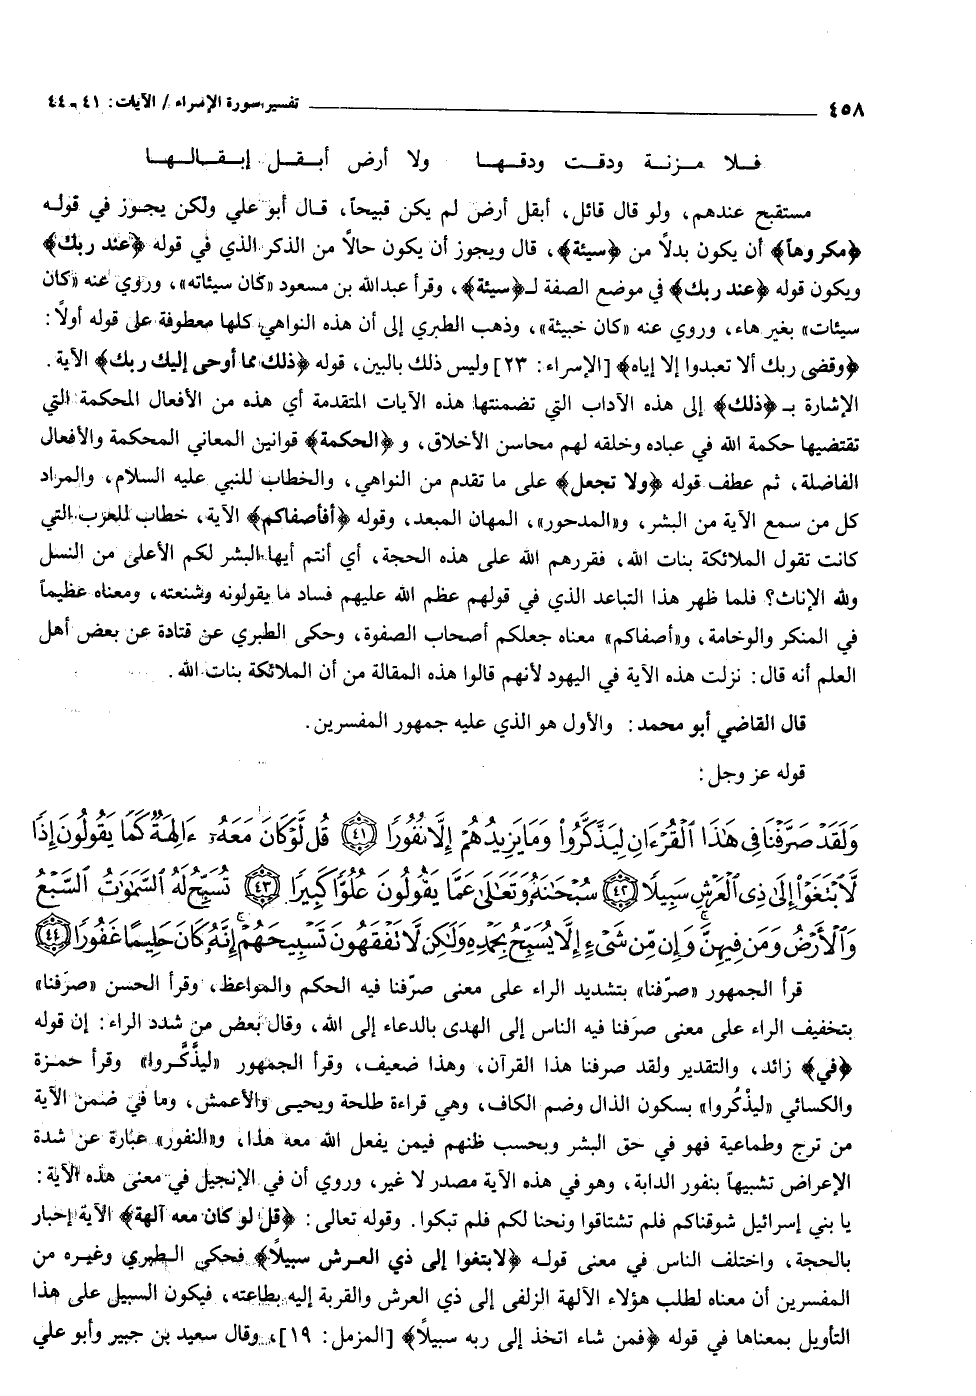 ٤٥٨ ــــــــــــــــــــ تفسير سورة الإسراء / الآيات: ٤١ - ٤٤
فـلا مـزنـة ودقـت ودقـهـا ولا أرض أبـقـل إبـقـالـهـا
مستقبح عندهم، ولو قال قائل، أبقل أرض لم يكن قبيحاً، قـال أبو علي ولكن يجـوز في قولـه
﴿مكروهاً﴾ أن يكون بدلاً من ﴿سيئة﴾، قال ويجوز أن يكون حالاً من الذكر الذي في قوله ﴿عند ربك﴾
ويكون قوله ﴿عند ربك﴾ في موضع الصفة لـ﴿سيئة﴾، وقرأ عبدالله بن مسعود «كان سيئاته»، وروي عنه «كان
سيئات» بغير هاء، وروي عنه «كان خبيثة»، وذهب الطبري إلى أن هذه النواهي كلها معطوفة على قوله أولاً:
﴿وقضى ربك ألا تعبدوا إلا إياه﴾ [الإسراء: ٢٣] وليس ذلك بالبين، قوله ﴿ذلك مما أوحى إليك ربك﴾ الآية.
الإشارة بـ ﴿ذلك﴾ إلى هذه الآداب التي تضمنتها هذه الآيات المتقدمة أي هذه من الأفعال المحكمة التي
تقتضيها حكمة الله في عباده وخلقه لهم محاسن الأخلاق، و ﴿الحكمة﴾ قوانين المعاني المحكمة والأفعال
الفاضلة، ثم عطف قوله ﴿ولا تجعل﴾ على ما تقدم من النواهي، والخطاب للنبي عليه السلام، والمراد
كل من سمع الآية من البشر، و«المدحور»، المهان المبعد، وقوله ﴿أفأصفاكم﴾ الآية، خطاب للعرب التي
كانت تقول الملائكة بنات الله، فقررهم الله على هذه الحجة، أي أنتم أيها البشر لكم الأعلى من النسل
ولله الإناث؟ فلما ظهر هذا التباعد الذي في قولهم عظم الله عليهم فساد ما يقولونه وشنعته، ومعناه عظيماً
في المنكر والوخامة، و«أصفاكم» معناه جعلكم أصحاب الصفوة، وحكى الطبري عن قتادة عن بعض أهل
العلم أنه قال: نزلت هذه الآية في اليهود لأنهم قالوا هذه المقالة من أن الملائكة بنات الله.
قال القاضي أبو محمد: والأول هو الذي عليه جمهور المفسرين.
قوله عز وجل:
وَلَقَدْ صَرَّفْنَا فِى هَٰذَا ٱلْقُرْءَانِ لِيَذَّكَّرُوا۟ وَمَا يَزِيدُهُمْ إِلَّا نُفُورًا ﴿٤١﴾ قُل لَّوْ كَانَ مَعَهُۥٓ ءَالِهَةٌ كَمَا يَقُولُونَ إِذًا
لَّٱبْتَغَوْا۟ إِلَىٰ ذِى ٱلْعَرْشِ سَبِيلًا ﴿٤٢﴾ سُبْحَٰنَهُۥ وَتَعَٰلَىٰ عَمَّا يَقُولُونَ عُلُوًّا كَبِيرًا ﴿٤٣﴾ تُسَبِّحُ لَهُ ٱلسَّمَٰوَٰتُ ٱلسَّبْعُ
وَٱلْأَرْضُ وَمَن فِيهِنَّ ۚ وَإِن مِّن شَىْءٍ إِلَّا يُسَبِّحُ بِحَمْدِهِۦ وَلَٰكِن لَّا تَفْقَهُونَ تَسْبِيحَهُمْ ۗ إِنَّهُۥ كَانَ حَلِيمًا غَفُورًا ﴿٤٤﴾
قرأ الجمهور «صرّفنا» بتشديد الراء على معنى صرّفنا فيه الحكم والمواعظ، وقرأ الحسن «صرَفنا»
بتخفيف الراء على معنى صرَفنا فيه الناس إلى الهدى بالدعاء إلى الله، وقال بعض من شدد الراء: إن قوله
﴿في﴾ زائد، والتقدير ولقد صرفنا هذا القرآن، وهذا ضعيف، وقرأ الجمهور «ليذَّكَّروا» وقرأ حمـزة
والكسائي «ليذْكُروا» بسكون الذال وضم الكاف، وهي قراءة طلحة ويحيى والأعمش، وما في ضمن الآية
من ترج وطماعية فهو في حق البشر وبحسب ظنهم فيمن يفعل الله معه هذا، و«النفور» عبارة عن شدة
الإعراض تشبيهاً بنفور الدابة، وهو في هذه الآية مصدر لا غير، وروي أن في الإنجيل في معنى هذه الآية:
يا بني إسرائيل شوقناكم فلم تشتاقوا ونحنا لكم فلم تبكوا. وقوله تعالى: ﴿قل لو كان معه آلهة﴾ الآية إخبار
بالحجة، واختلف الناس في معنى قولـه ﴿لابتغوا إلى ذي العـرش سبيلاً﴾ فحكى الـطبري وغيـره من
المفسرين أن معناه لطلب هؤلاء الآلهة الزلفى إلى ذي العرش والقربة إليه بطاعته، فيكون السبيل على هذا
التأويل بمعناها في قوله ﴿فمن شاء اتخذ إلى ربه سبيلاً﴾ [المزمل: ١٩]، وقال سعيد بن جبير وأبو علي